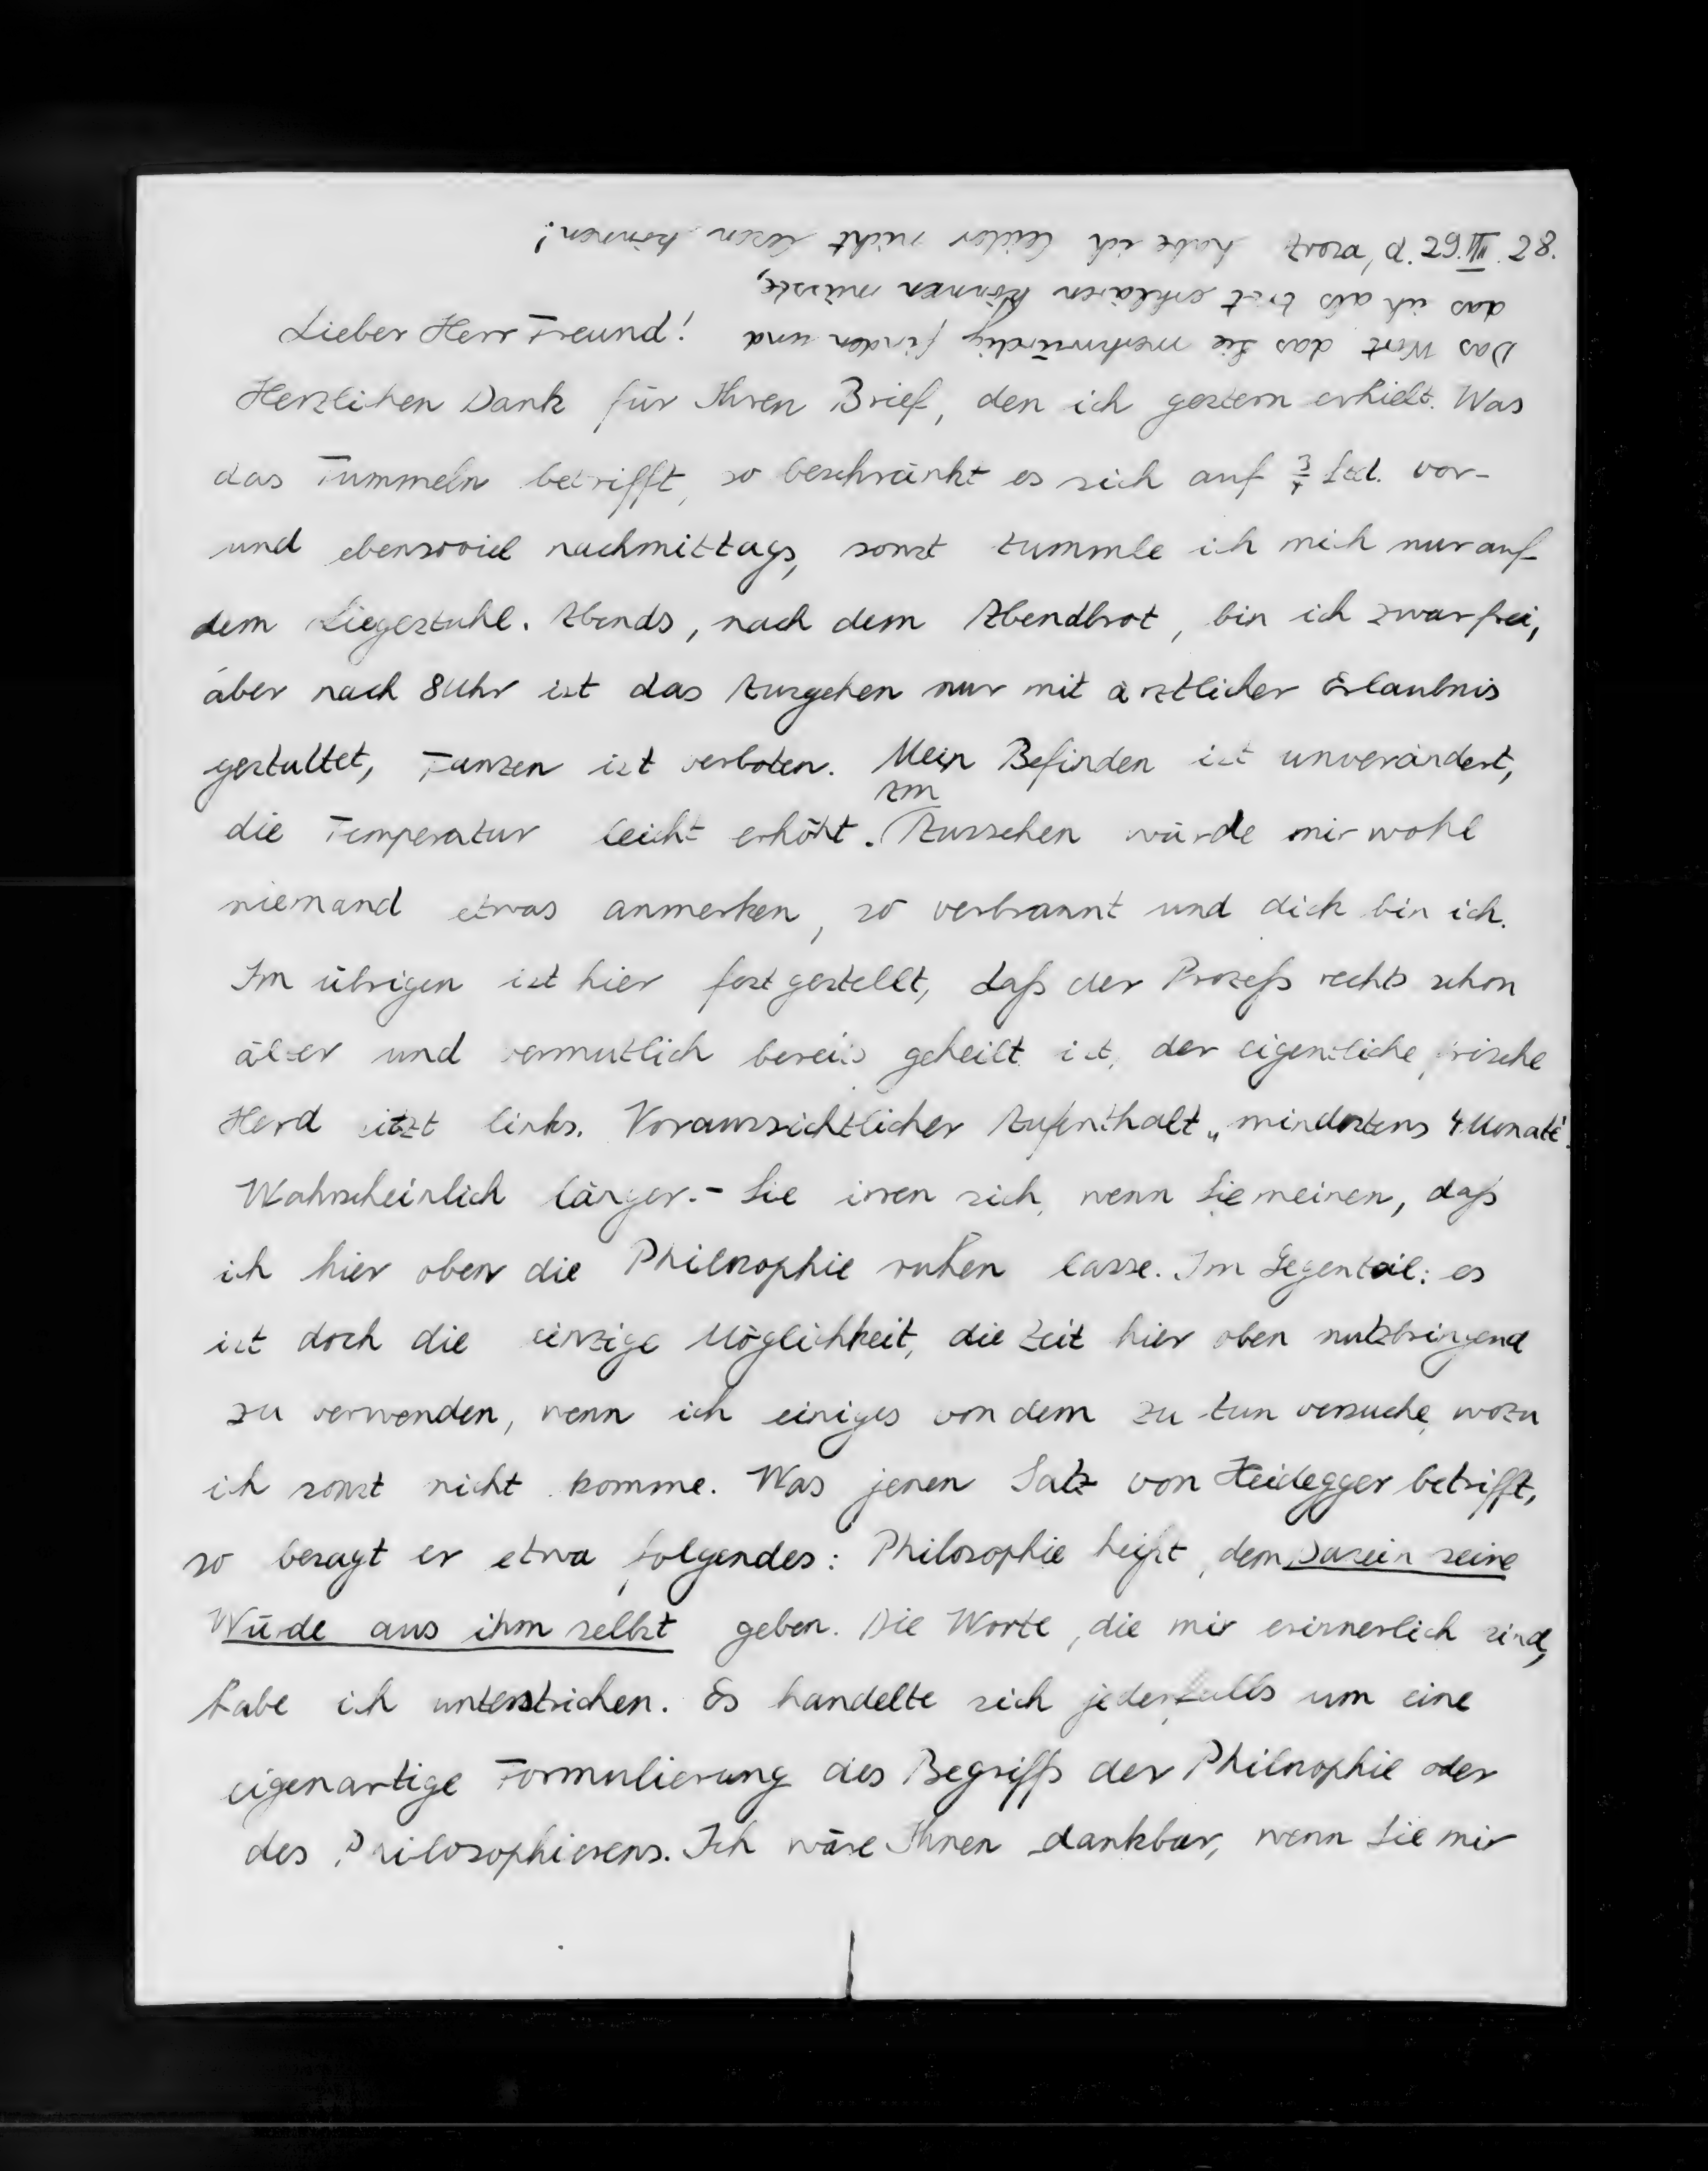 Arosa, d. 29.III.28.
Lieber Herr Freund!
Herzlichen Dank für Ihren Brief, den ich gestern erhielt. Was
das Tummeln betrifft, so beschränkt es sich auf ¾ Std. vor-
und ebensoviel nachmittags, sonst tummle ich mich nur auf
dem Liegestuhl. Abends, nach dem Abendbrot, bin ich zwar frei,
aber nach 8 Uhr ist das Ausgehen nur mit ärztlicher Erlaubnis
gestattet, Tanzen ist verboten. Mein Befinden ist unverändert,
die Temperatur leicht erhöht. Am Aussehen würde mir wohl
niemand etwas anmerken, so verbrannt und dick bin ich.
Im übrigen ist hier festgestellt, daß der Prozeß rechts schon
älter und vermutlich bereits geheilt ist, der eigentliche, frische
Herd sitzt links. Voraussichtlicher Aufenthalt „mindestens 4 Monate".
Wahrscheinlich länger. - Sie irren sich, wenn Sie meinen, daß
ich hier oben die Philosophie ruhen lasse. Im Gegenteil: es
ist doch die einzige Möglichkeit, die Zeit hier oben nutzbringend
zu verwenden, wenn ich einiges von dem zu tun versuche, wozu
ich sonst nicht komme. Was jenen Satz von Heidegger betrifft,
so besagt er etwa folgendes: Philosophie heißt, dem Dasein seine
Würde aus ihm selbst geben. Die Worte, die mir erinnerlich sind,
habe ich unterstrichen. Es handelte sich jedenfalls um eine
eigenartige Formulierung des Begriffs der Philosophie oder
des Philosophierens. Ich wäre Ihnen dankbar, wenn Sie mir
Das Wort das Sie merkwürdig finden und
das ich als erklären können müsste,
habe ich leider nicht lesen können!